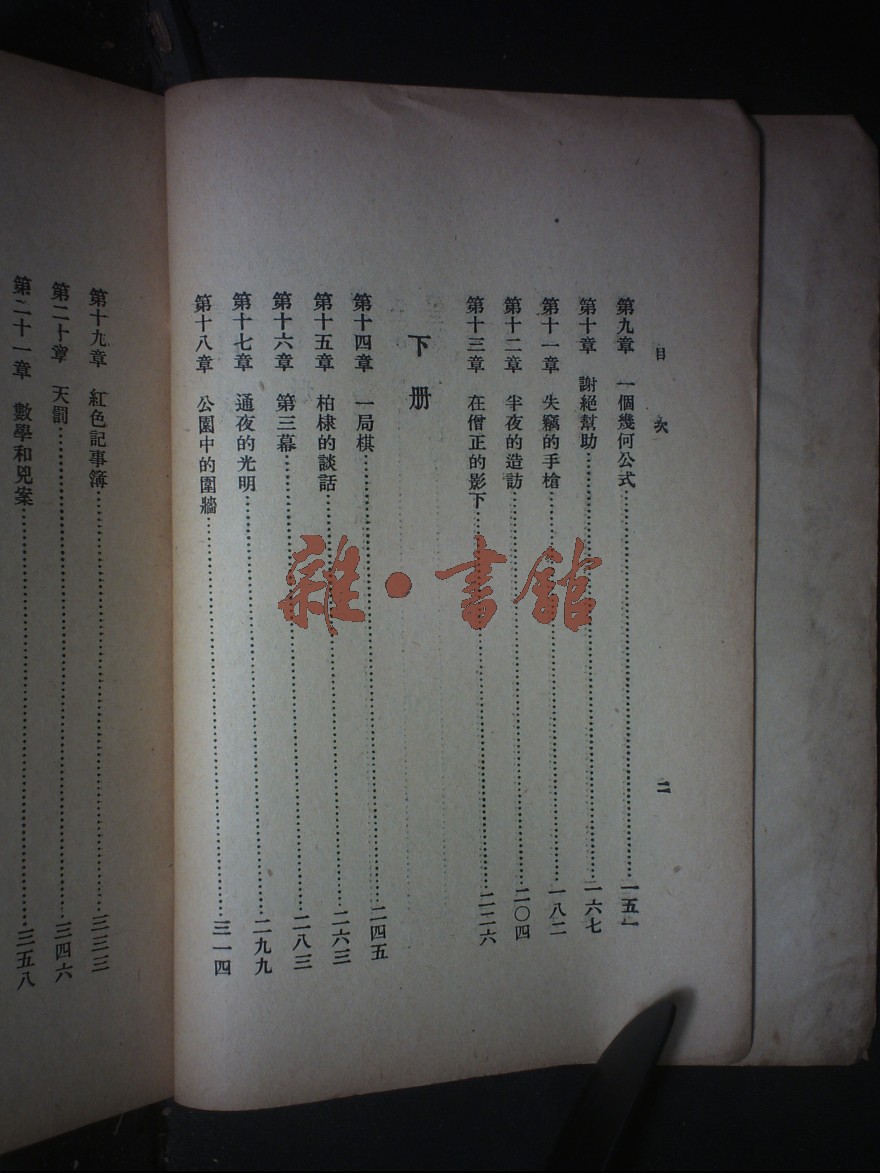 目次
二
第九章 一個幾何公式……一五一
第十章 謝絕幫助……一六七
第十一章 失竊的手槍……一八二
第十二章 半夜的造訪……二〇四
第十三章 在僧正的影下……二二六
下册
第十四章 一局棋……二四五
第十五章 柏棣的談話……二六三
第十六章 第三幕……二八三
第十七章 通夜的光明……二九九
第十八章 公園中的圍牆……三一四
第十九章 紅色記事簿……三三三
第二十章 天罰……三四六
第二十一章 數學和兇案……三五八
雜·書館